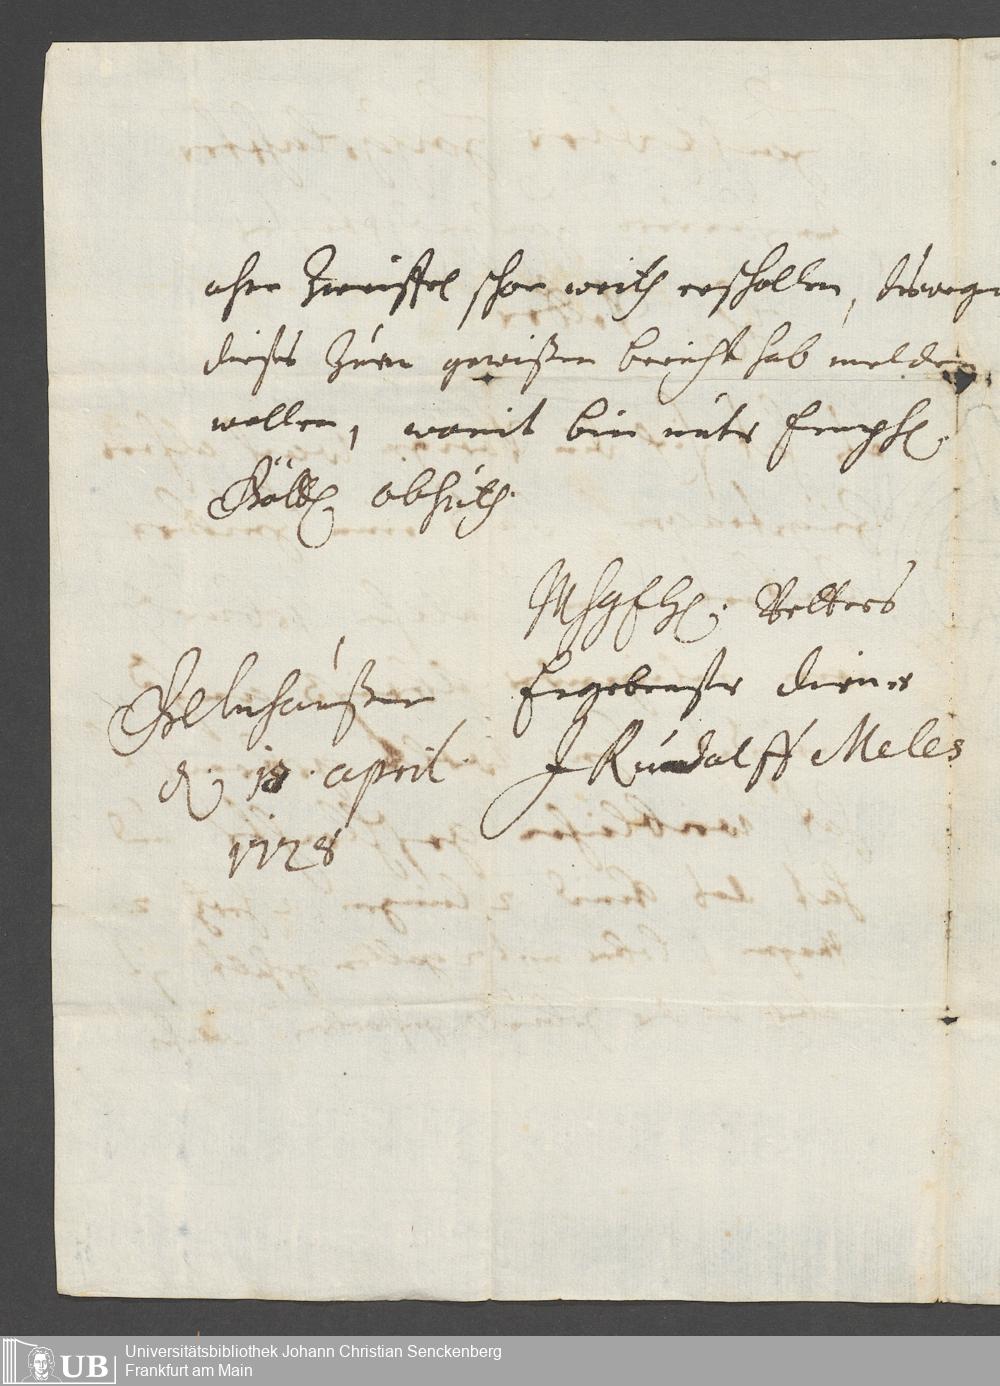 ohne Zweiffel schon weith erschollen, deswegen
dieses zum gewißen bericht hab melden
wollen, womit bin nebst Empfhl.
Göttl. obhuth.
MhgEhl. Vetters
Ergebenster diener
J Rudolff Meles
Gelnhaußen
d. 18. april
1728
UB
Universitätsbibliothek Johann Christian Senckenberg
Frankfurt am Main